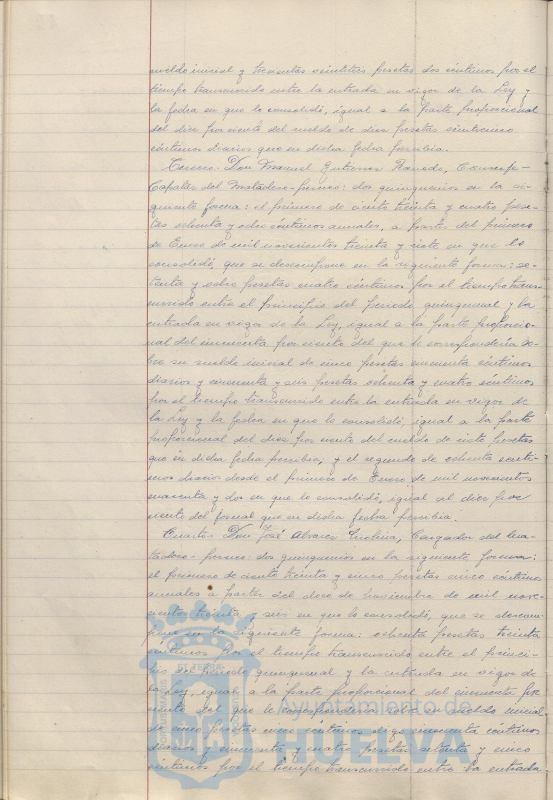 sueldo inicial y trescientas veintitres pesetas dos céntimos por el
tiempo transcurrido entre la entrada en vigor de la Ley y
la fecha en que lo consolidó, igual a la parte proporcional
del diez por ciento del sueldo de diez pesetas veinticinco
céntimos diarios que en dicha fecha percibía.
Tercero: Don Manuel Gutierrez
Capataz del Matadero-: dos quinquenios en la si-
guiente forma: el primero de ciento treinta y cuatro pese-
tas ochenta y ocho céntimos anuales, a partir del primero
de Enero de mil novecientos treinta y siete en que lo
consolidó, que se descompone en la siguiente forma: se-
tenta y ocho pesetas cuatro céntimos por el tiempo trans-
currido entre el principio del periodo quinquenal y la
entrada en vigor de la Ley, igual a la parte proporcio-
nal del cincuenta por ciento del que le correspondería so-
bre su sueldo inicial de cinco pesetas cincuenta céntimos
diarios y cincuenta y seis pesetas ochenta y cuatro céntimos
por el tiempo transcurrido entre la entrada en vigor de
la Ley y la fecha en que lo consolidó, igual a la parte
proporcional del diez por ciento del sueldo de siete pesetas
que en dicha fecha percibía; y el segundo de ochenta cénti-
mos diarios desde el primero de Enero de mil novecientos
cuarenta y dos en que lo consolidó, igual al diez por
ciento del jornal que en dicha fecha percibía.
Cuarto: Don José Alvarez, Cargador del Ma-
tadero-: dos quinquenios en la siguiente forma:
el primero de ciento treinta y cinco pesetas cinco céntimos
anuales a partir del doce de Noviembre de mil nove-
cientos treinta y seis en que lo consolidó, que se descom-
pone en la siguiente forma: ochenta pesetas treinta
céntimos por el tiempo transcurrido entre el princi-
pio del periodo quinquenal y la entrada en vigor de
la Ley, igual a la parte proporcional del cincuenta por
ciento del que le correspondería sobre su sueldo inicial
de cinco pesetas cinco céntimos digo cincuenta céntimos
diarios y cincuenta y cuatro pesetas setenta y cinco
céntimos por el tiempo transcurrido entre la entrada
Ayuntamiento de
HUELVA